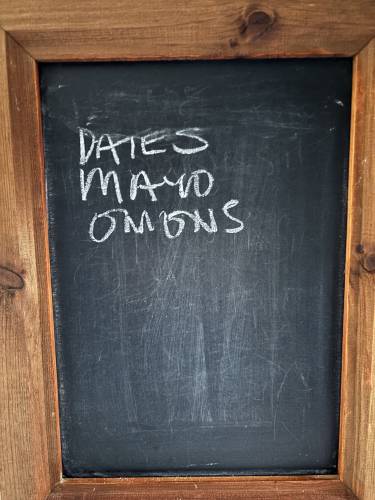 DATES
MAYO
ONIONS